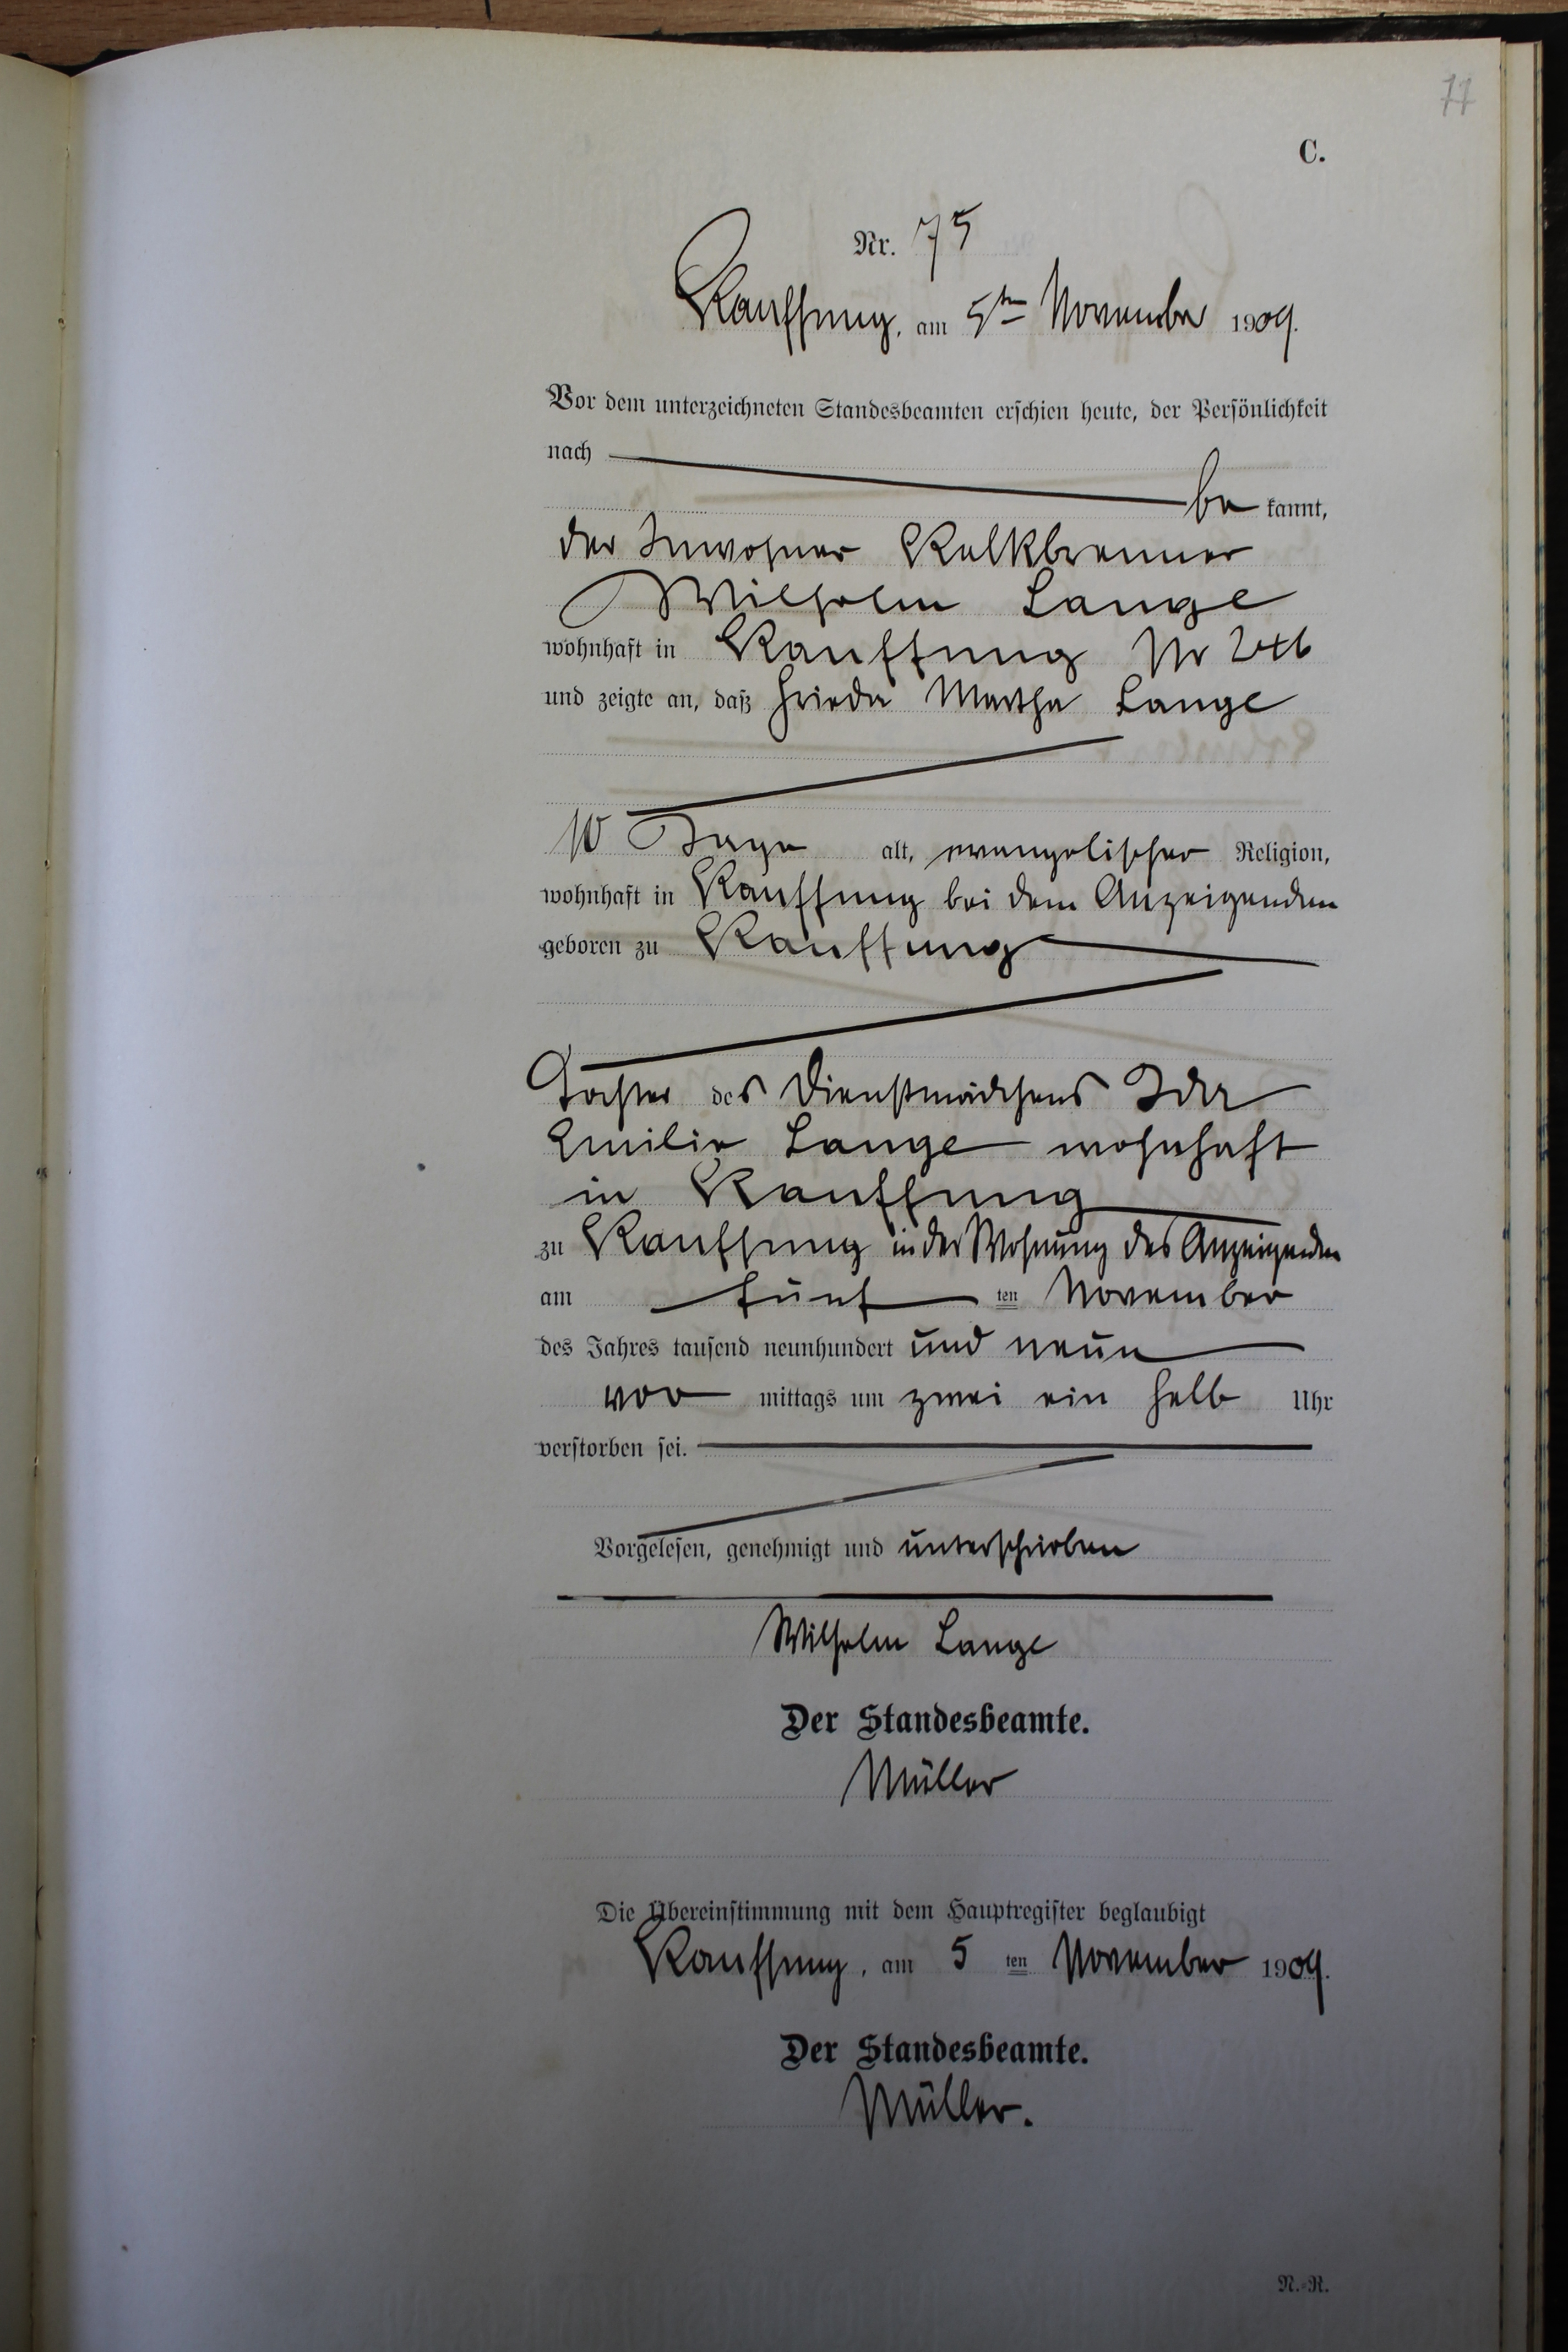 77
C.
Nr. 75
Kauffung, am 5ten November 1909.
Vor dem unterzeichneten Standesbeamten erschien heute, der Persönlichkeit
nach
be kannt,
der Inwohner Kalkbrenner
Wilhelm Lange
wohnhaft in Kauffung Nr 246
und zeigte an, daß Frieda Martha Lange
10 Tage alt, evangelischer Religion,
wohnhaft in Kauffung bei dem Anzeigenden
geboren zu Kauffung
Tochter des Dienstmädchens Ida
Emilie Lange wohnhaft
in Kauffung
zu Kauffung in der Wohnung des Anzeigenden
am fünf ten November
des Jahres tausend neunhundert und neun
vor mittags um zwei ein halb Uhr
verstorben sei.
Vorgelesen, genehmigt und unterschrieben
Wilhelm Lange
Der Standesbeamte.
Müller
Die Übereinstimmung mit dem Hauptregister beglaubigt
Kauffung, am 5 ten November 1909.
Der Standesbeamte.
Müller.
N.-R.